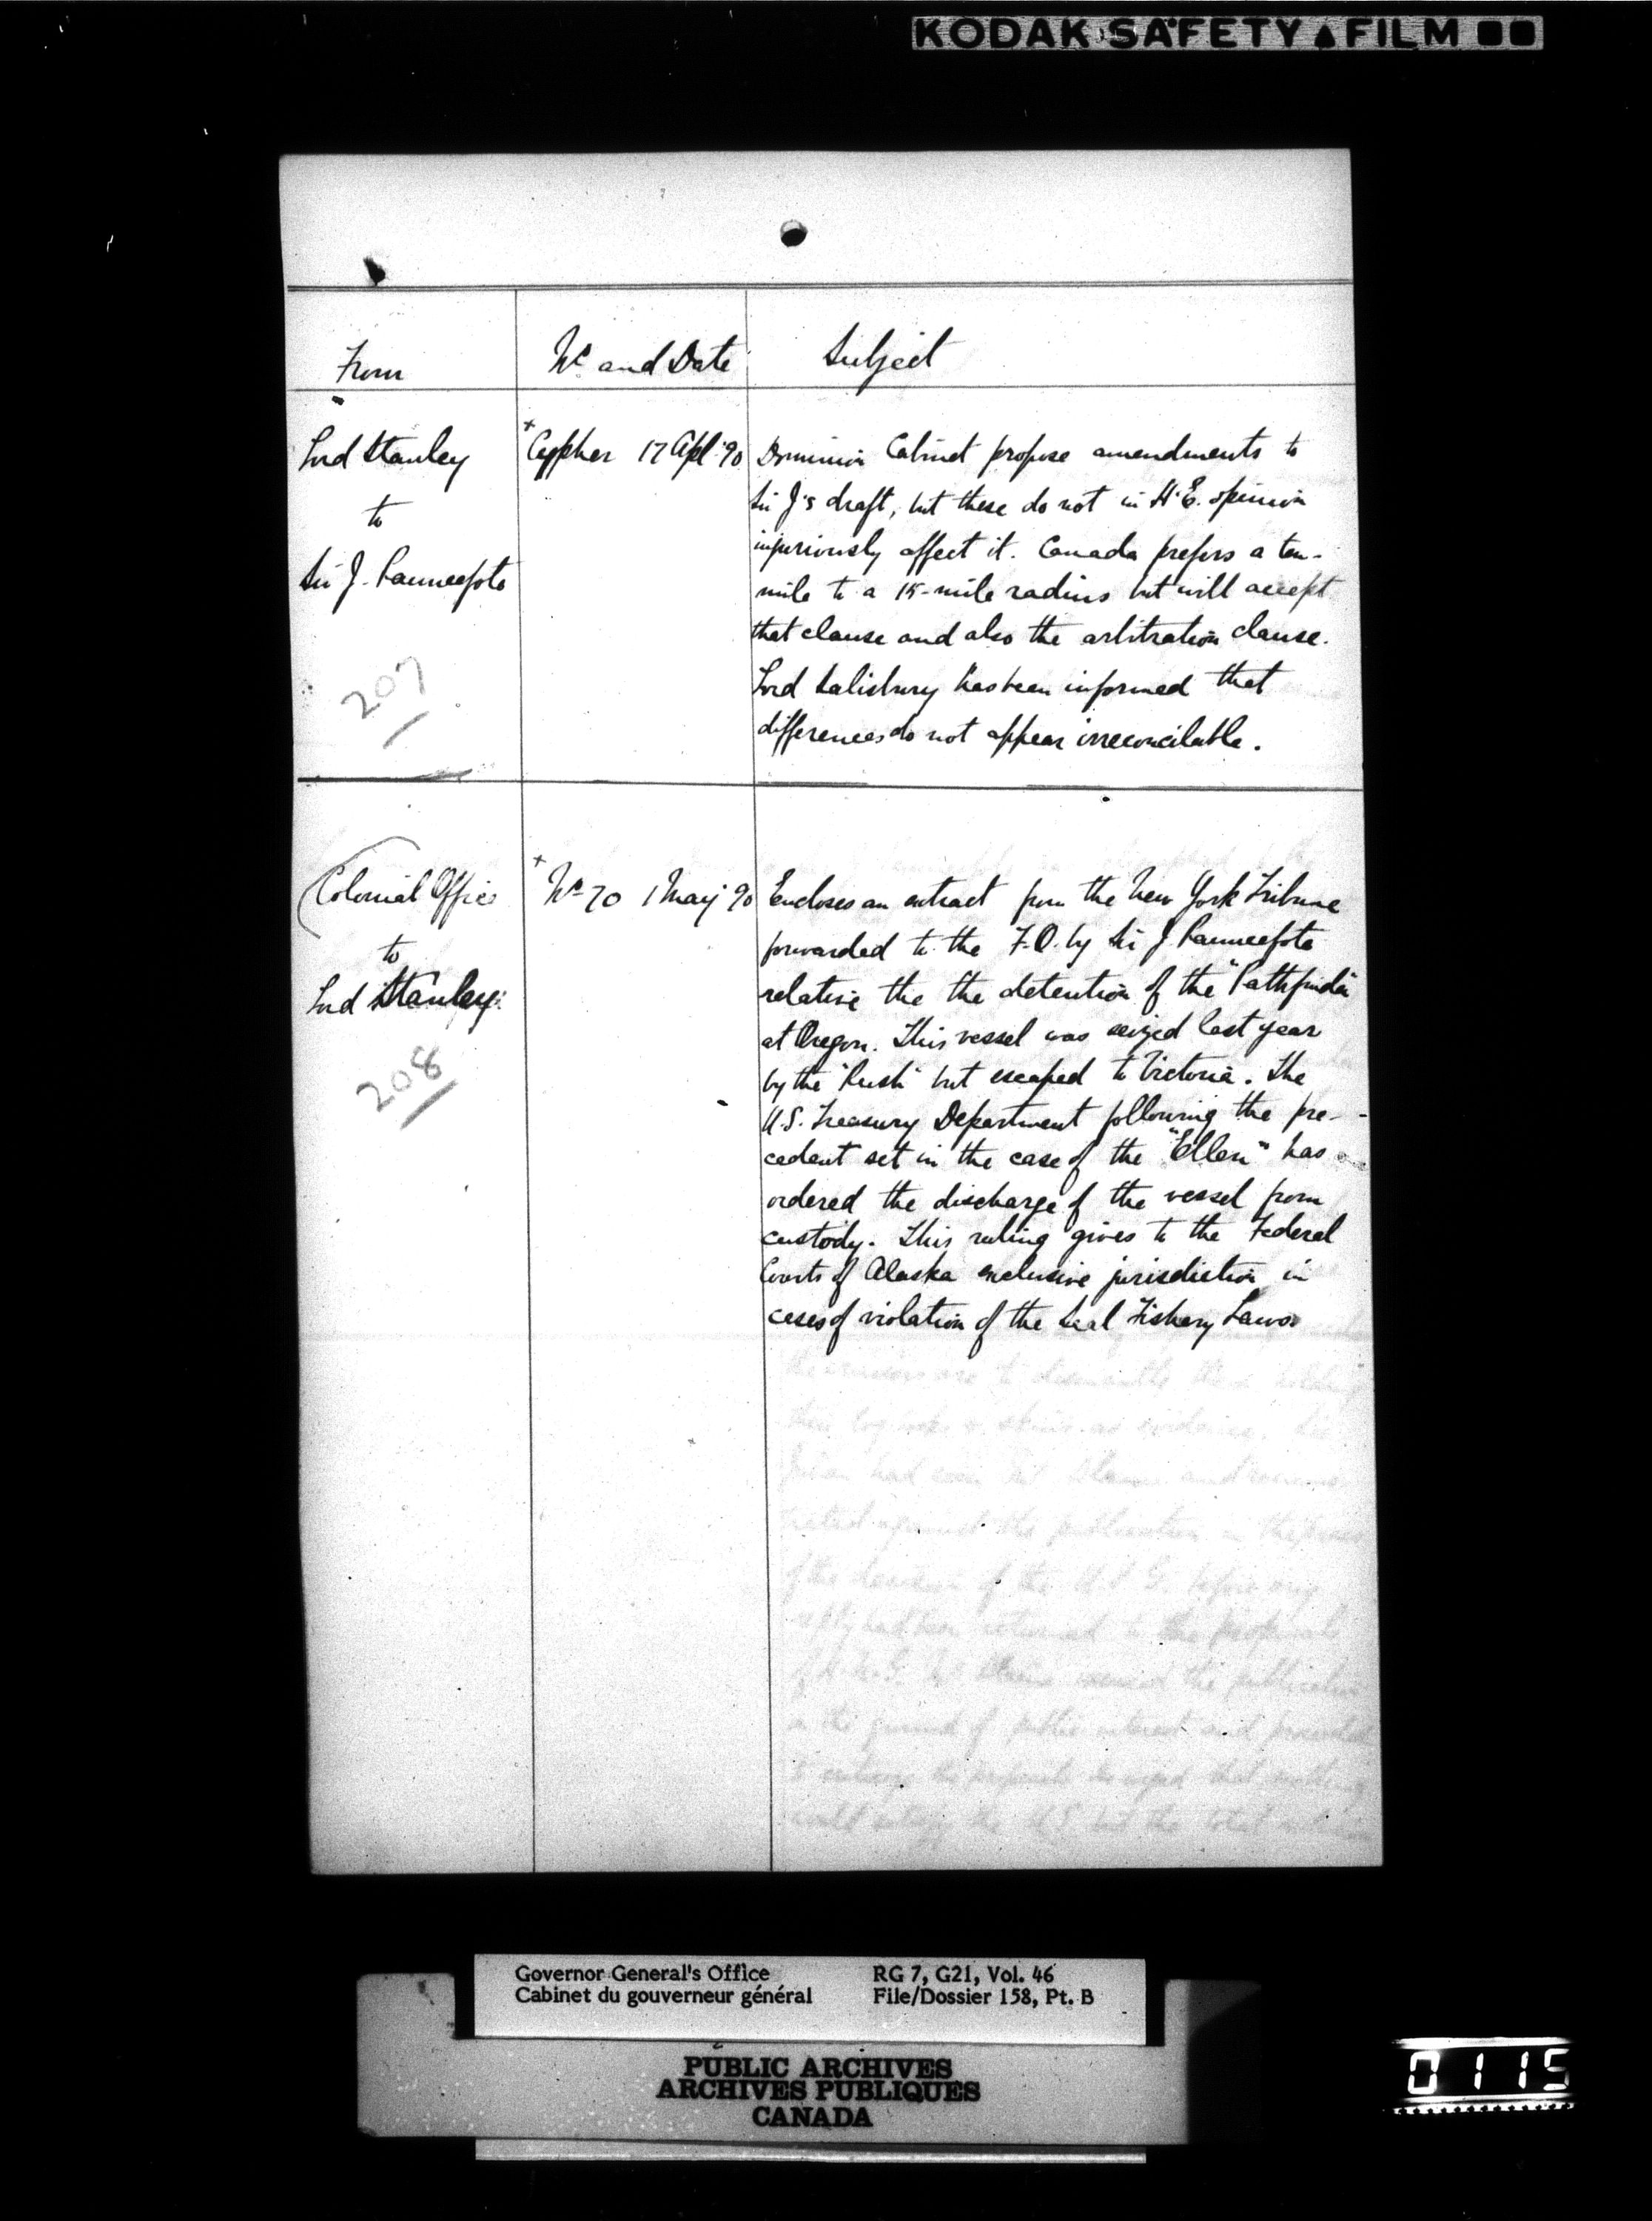 KODAK SAFETY FILM
From
No and Date
Subject
Lord Stanley
to
Sir J. Pauncefote
207
+
Cypher 17 Apl. 90
Dominion Cabinet propose amendments to
Sir J's draft, but these do not in H.E. opinion
injuriously affect it. Canada prefers a ten-
mile to a 15-mile radius but will accept
that clause and also the arbitration clause.
Lord Salisbury has been informed that
differences do not appear irreconcilable.
Colonial Office
to
Lord Stanley.
208
+
No 70 1 May 90
Encloses an extract from the New York Tribune
forwarded to the F.O. by Sir J. Pauncefote
relative the the detention of the "Pathfinder"
at Oregon. This vessel was seized last year
by the "Rush" but escaped to Victoria. The
U.S. Treasury Department following the pre-
cedent set in the case of the "Ellen" has
ordered the discharge of the vessel from
custody. This ruling gives to the Federal
Courts of Alaska exclusive jurisdiction in
cases of violation of the Seal Fishery Laws.
Governor General's Office
Cabinet du gouverneur général
RG 7, G21, Vol. 46
File/Dossier 158, Pt. B
PUBLIC ARCHIVES
ARCHIVES PUBLIQUES
CANADA
0115